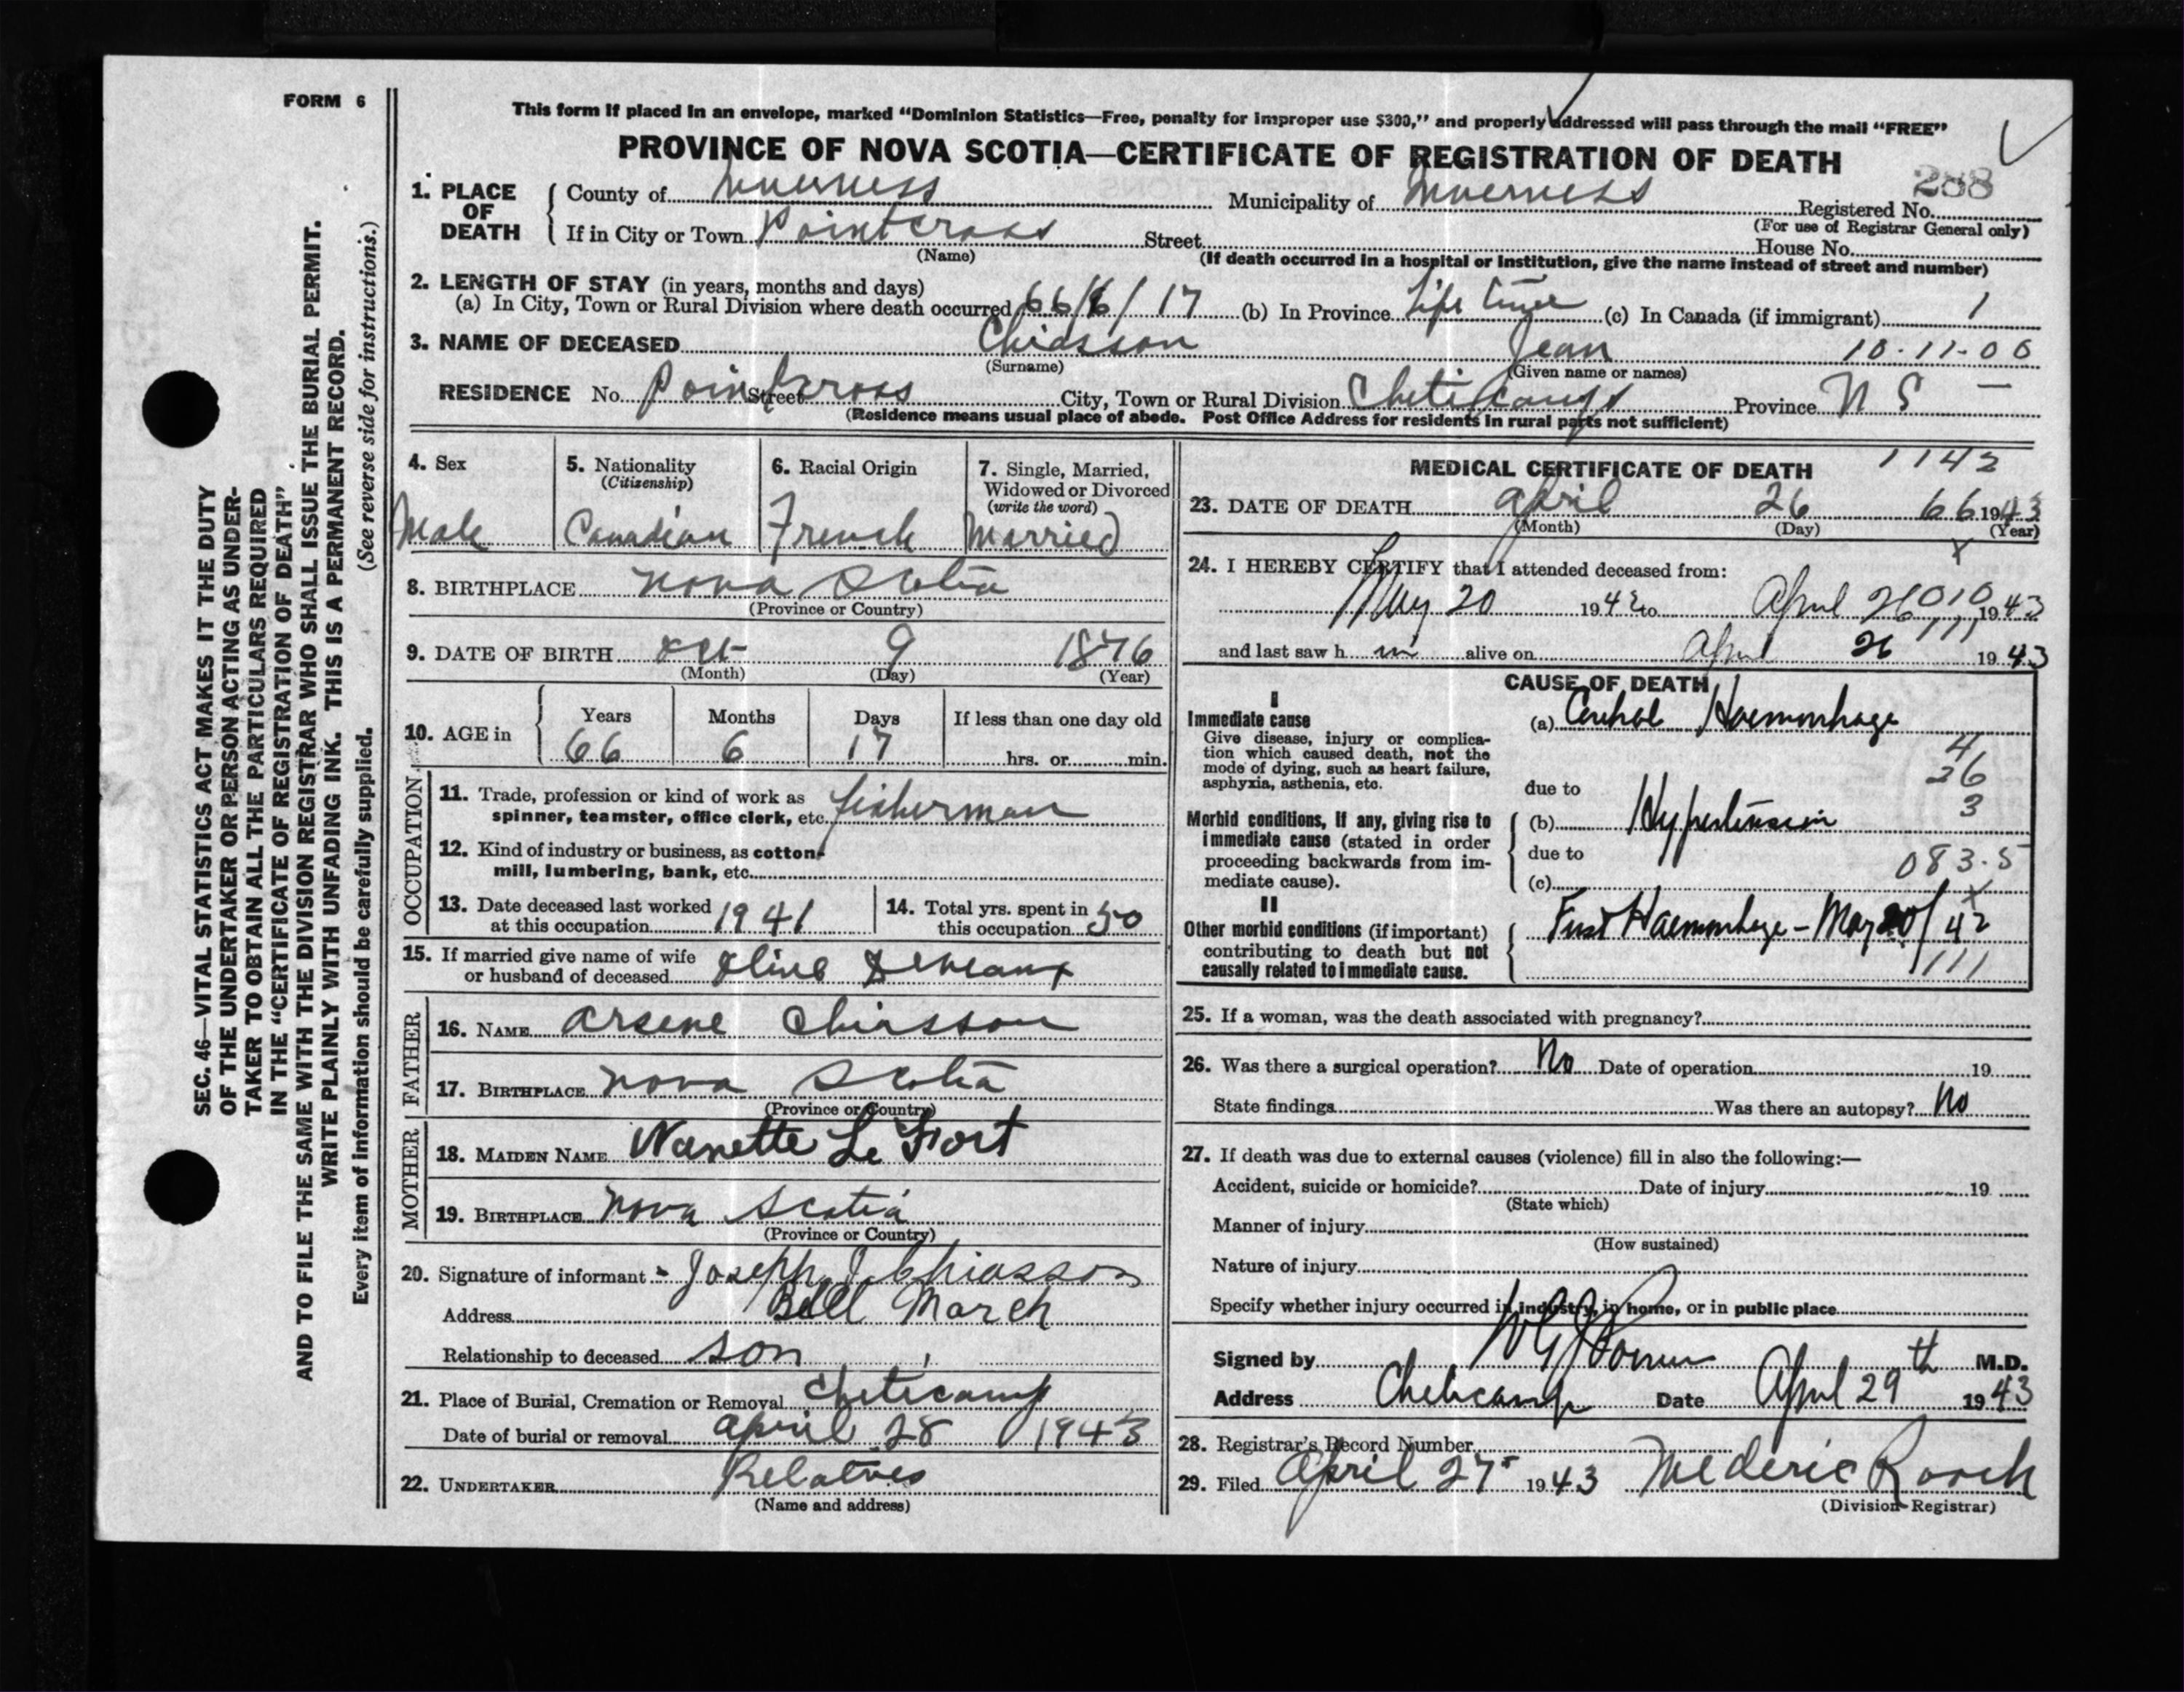 FORM 6
This form if placed in an envelope, marked “Dominion Statistics—Free, penalty for improper use $300,” and properly addressed will pass through the mail “FREE”
PROVINCE OF NOVA SCOTIA—CERTIFICATE OF REGISTRATION OF DEATH
288
1. PLACE OF DEATH County of Inverness Municipality of Inverness Registered No.
(For use of Registrar General only)
If in City or Town Pointcross Street House No.
(Name) (If death occurred in a hospital or institution, give the name instead of street and number)
2. LENGTH OF STAY (in years, months and days)
(a) In City, Town or Rural Division where death occurred 66/6/17 (b) In Province Life time (c) In Canada (if immigrant) 1
3. NAME OF DECEASED Chiasson Jean 10-11-00
(Surname) (Given name or names)
RESIDENCE No. Pointcross Street City, Town or Rural Division Cheticamp Province N S —
(Residence means usual place of abode. Post Office Address for residents in rural parts not sufficient)
4. Sex
Male
5. Nationality
(Citizenship)
Canadian
6. Racial Origin
French
7. Single, Married,
Widowed or Divorced
(write the word)
Married
8. BIRTHPLACE Nova Scotia
(Province or Country)
9. DATE OF BIRTH Oct 9 1876
(Month) (Day) (Year)
10. AGE in Years Months Days If less than one day old
66 6 17 hrs. or min.
OCCUPATION
11. Trade, profession or kind of work as
spinner, teamster, office clerk, etc. fisherman
12. Kind of industry or business, as cotton-
mill, lumbering, bank, etc.
13. Date deceased last worked
at this occupation 1941
14. Total yrs. spent in
this occupation 50
15. If married give name of wife
or husband of deceased Deveaux
FATHER
16. NAME Arsene Chiasson
17. BIRTHPLACE Nova Scotia
(Province or Country)
MOTHER
18. MAIDEN NAME Nanette Le Fort
19. BIRTHPLACE Nova Scotia
(Province or Country)
20. Signature of informant - Joseph J Chiasson
Address Bell March
Relationship to deceased son
21. Place of Burial, Cremation or Removal Cheticamp
Date of burial or removal April 28 1943
22. UNDERTAKER Relatives
(Name and address)
MEDICAL CERTIFICATE OF DEATH 1142
23. DATE OF DEATH April 26 66 1943
(Month) (Day) (Year)
24. I HEREBY CERTIFY that I attended deceased from: x
May 20 1942 to April 26 010 1943
and last saw h im alive on April 26 111 1943
CAUSE OF DEATH
I
Immediate cause
Give disease, injury or complica-
tion which caused death, not the
mode of dying, such as heart failure,
asphyxia, asthenia, etc.
(a) Cerebral Haemorrhage
4
26
3
due to
Morbid conditions, if any, giving rise to
immediate cause (stated in order
proceeding backwards from im-
mediate cause).
(b) Hypertension
due to 083.5
(c) x
II
Other morbid conditions (if important)
contributing to death but not
causally related to immediate cause.
First Haemorrhage - May 20/42
111
25. If a woman, was the death associated with pregnancy?
26. Was there a surgical operation? No Date of operation 19
State findings Was there an autopsy? No
27. If death was due to external causes (violence) fill in also the following:—
Accident, suicide or homicide? Date of injury 19
(State which)
Manner of injury
(How sustained)
Nature of injury
Specify whether injury occurred in industry, in home, or in public place
Signed by M.D.
Address Cheticamp Date April 29th 1943
28. Registrar's Record Number
29. Filed April 27 1943 Mederic Roach
(Division Registrar)
SEC. 46—VITAL STATISTICS ACT MAKES IT THE DUTY
OF THE UNDERTAKER OR PERSON ACTING AS UNDER-
TAKER TO OBTAIN ALL THE PARTICULARS REQUIRED
IN THE “CERTIFICATE OF REGISTRATION OF DEATH”
AND TO FILE THE SAME WITH THE DIVISION REGISTRAR WHO SHALL ISSUE THE BURIAL PERMIT.
WRITE PLAINLY WITH UNFADING INK. THIS IS A PERMANENT RECORD.
Every item of information should be carefully supplied. (See reverse side for instructions.)